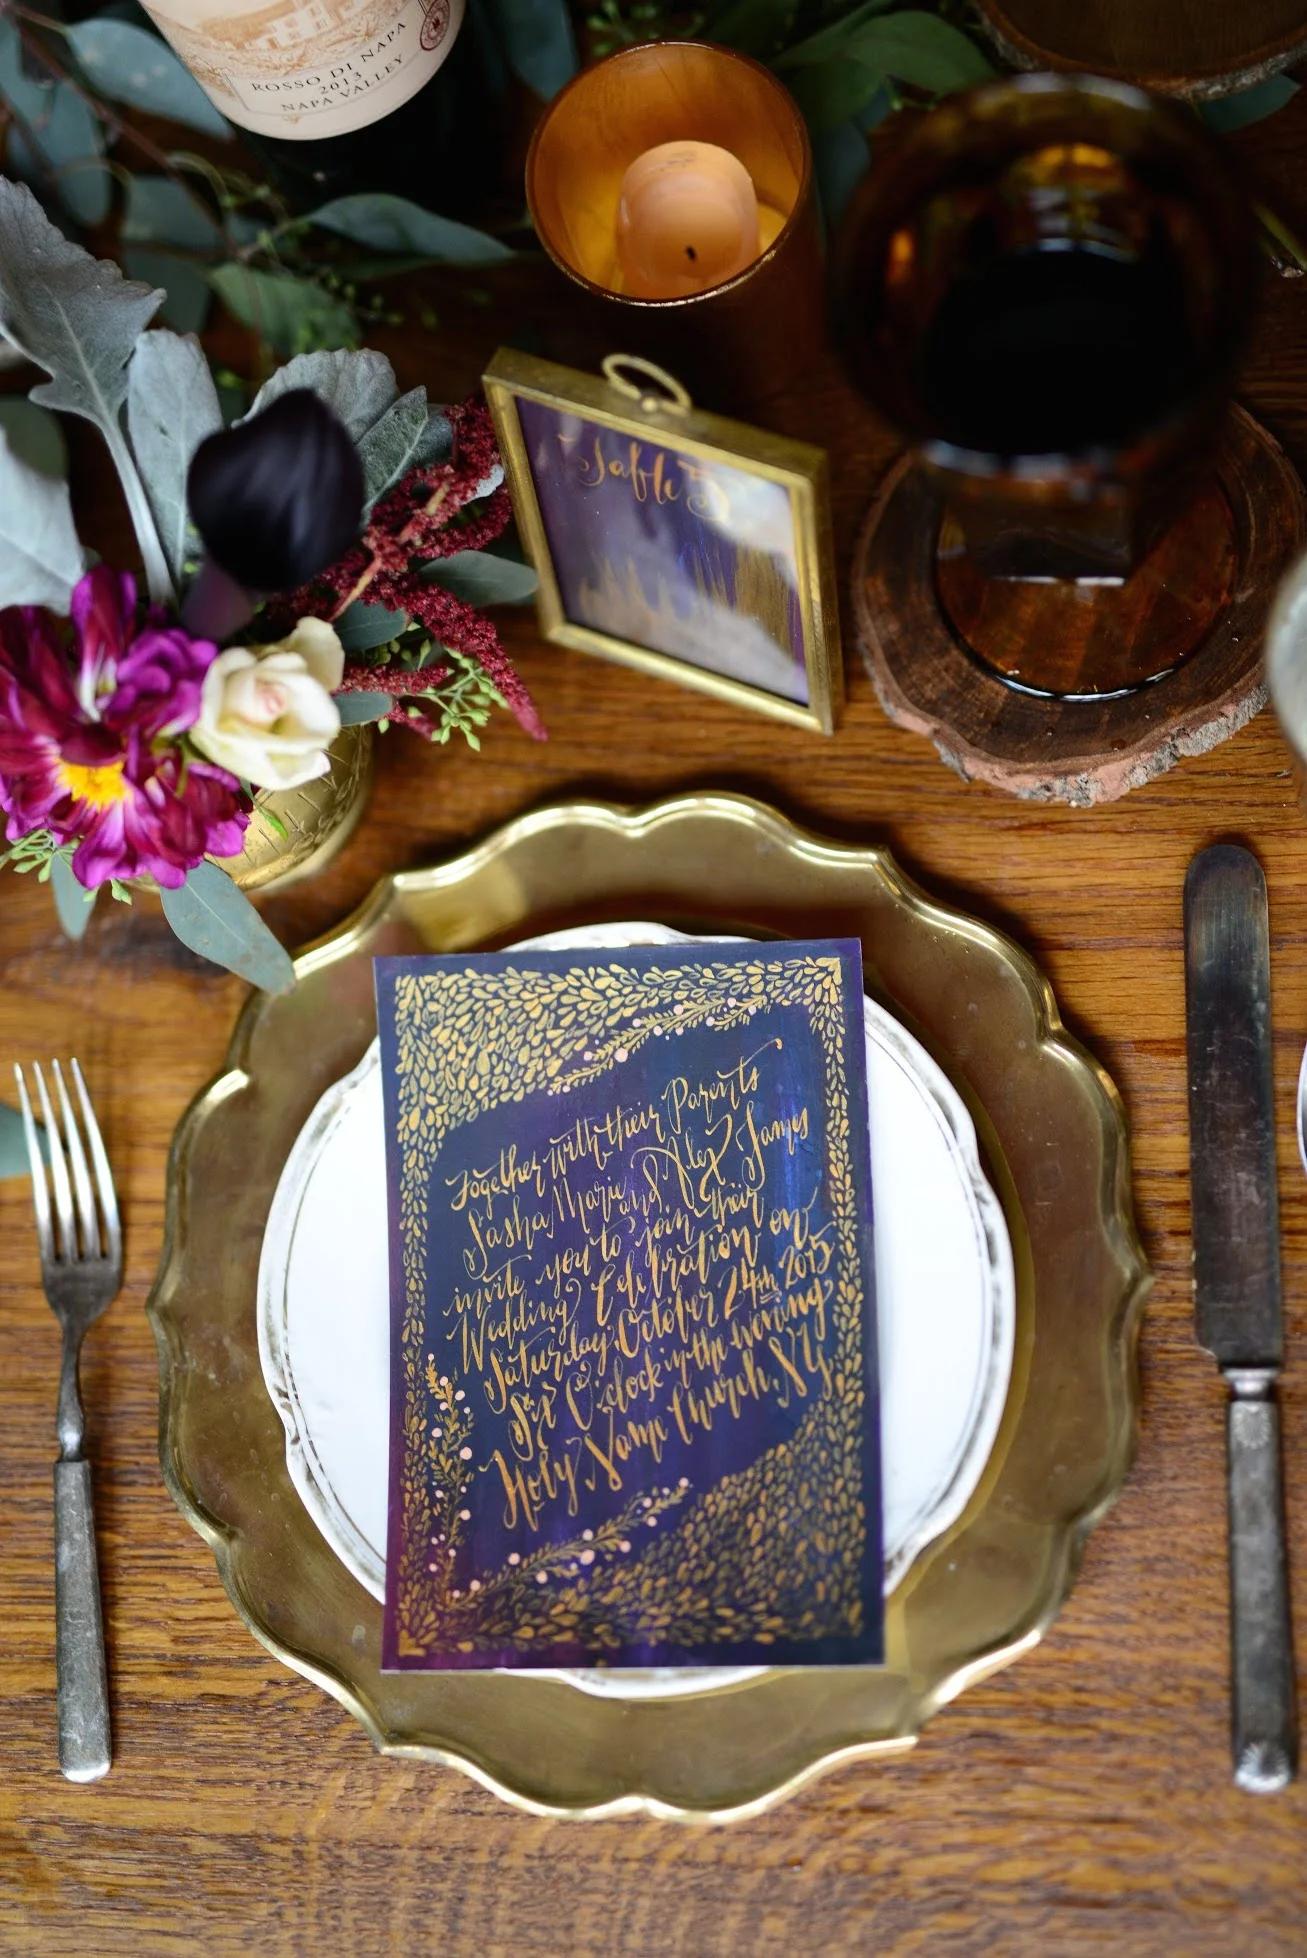 ROSSO DI NAPA
2013
NAPA VALLEY
Table 5
Together with their Parents
Sasha Marie and Alex James
invite you to join their
Wedding Celebration on
Saturday, October 24th 2015
Six O'clock in the evening
Holy Name Church, NY